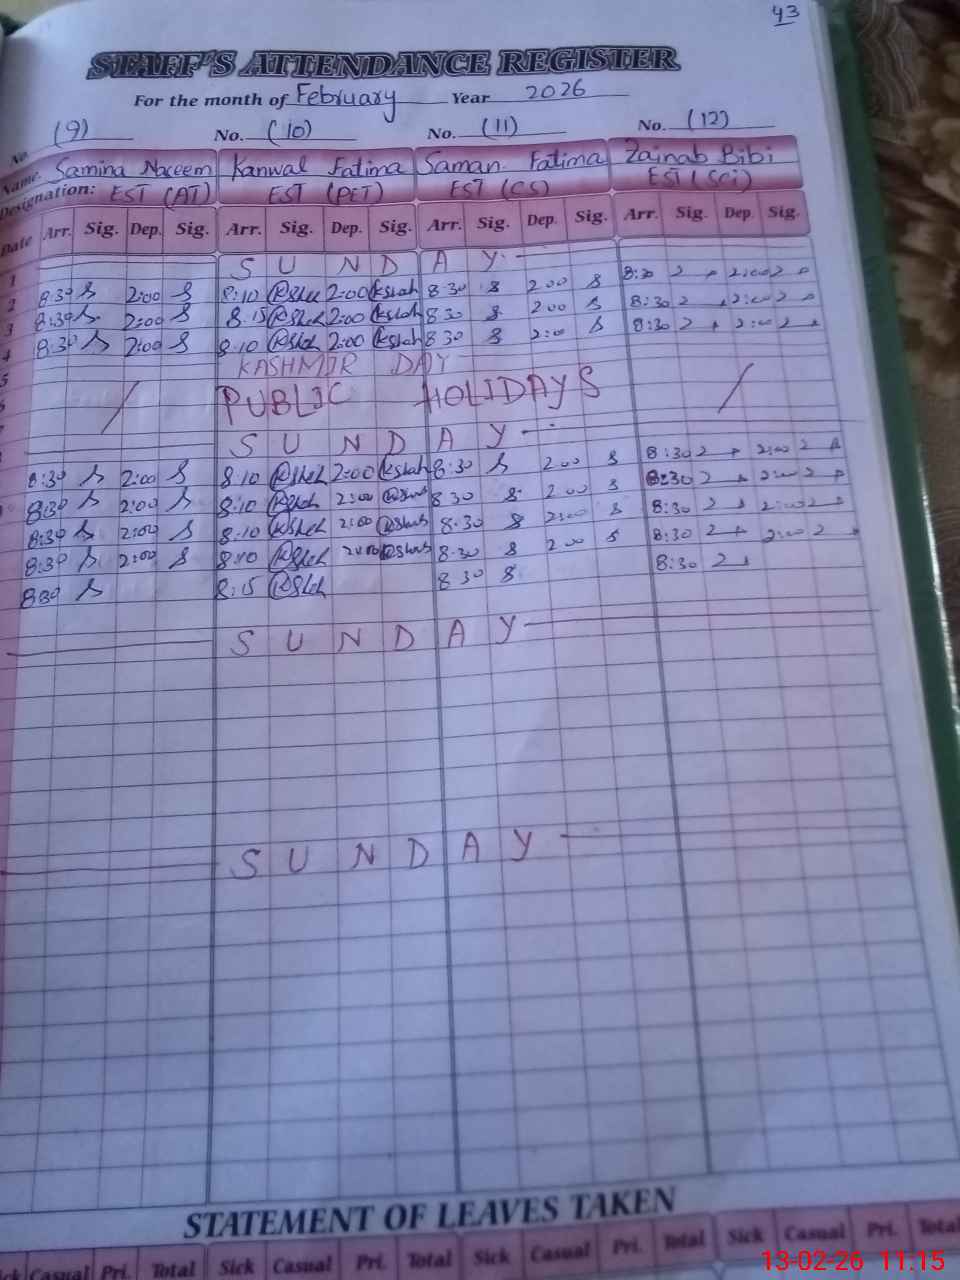 43
STAFF'S ATTENDANCE REGISTER
For the month of February Year 2026
No. (9) No. (10) No. (11) No. (12)
Name. Samina Naeem Kanwal Fatima Saman Fatima Zainab Bibi
Designation: EST (AT) EST (PET) EST (CS) EST (Sci)
Date Arr. Sig. Dep. Sig. Arr. Sig. Dep. Sig. Arr. Sig. Dep. Sig. Arr. Sig. Dep. Sig.
1 SUNDAY
2 8:30 2:00 8:10 2:00 8:30 2:00 8:30 2:00
3 8:30 2:00 8:15 2:00 8:30 2:00 8:30 2:00
4 8:30 2:00 8:10 2:00 8:30 2:00 8:30 2:00
5 KASHMIR DAY
6 / PUBLIC HOLIDAYS /
7
SUNDAY
8:30 2:00 8:10 2:00 8:30 2:00 8:30 2:00
8:30 2:00 8:10 2:00 8:30 2:00 8:30 2:00
8:30 2:00 8:10 2:00 8:30 2:00 8:30 2:00
8:30 2:00 8:10 2:00 8:30 2:00 8:30 2:00
8:30 8:15 8:30 8:30
SUNDAY
SUNDAY
STATEMENT OF LEAVES TAKEN
Sick Casual Pri. Total Sick Casual Pri. Total Sick Casual Pri. Total Sick Casual Pri. Total
13-02-26 11:15